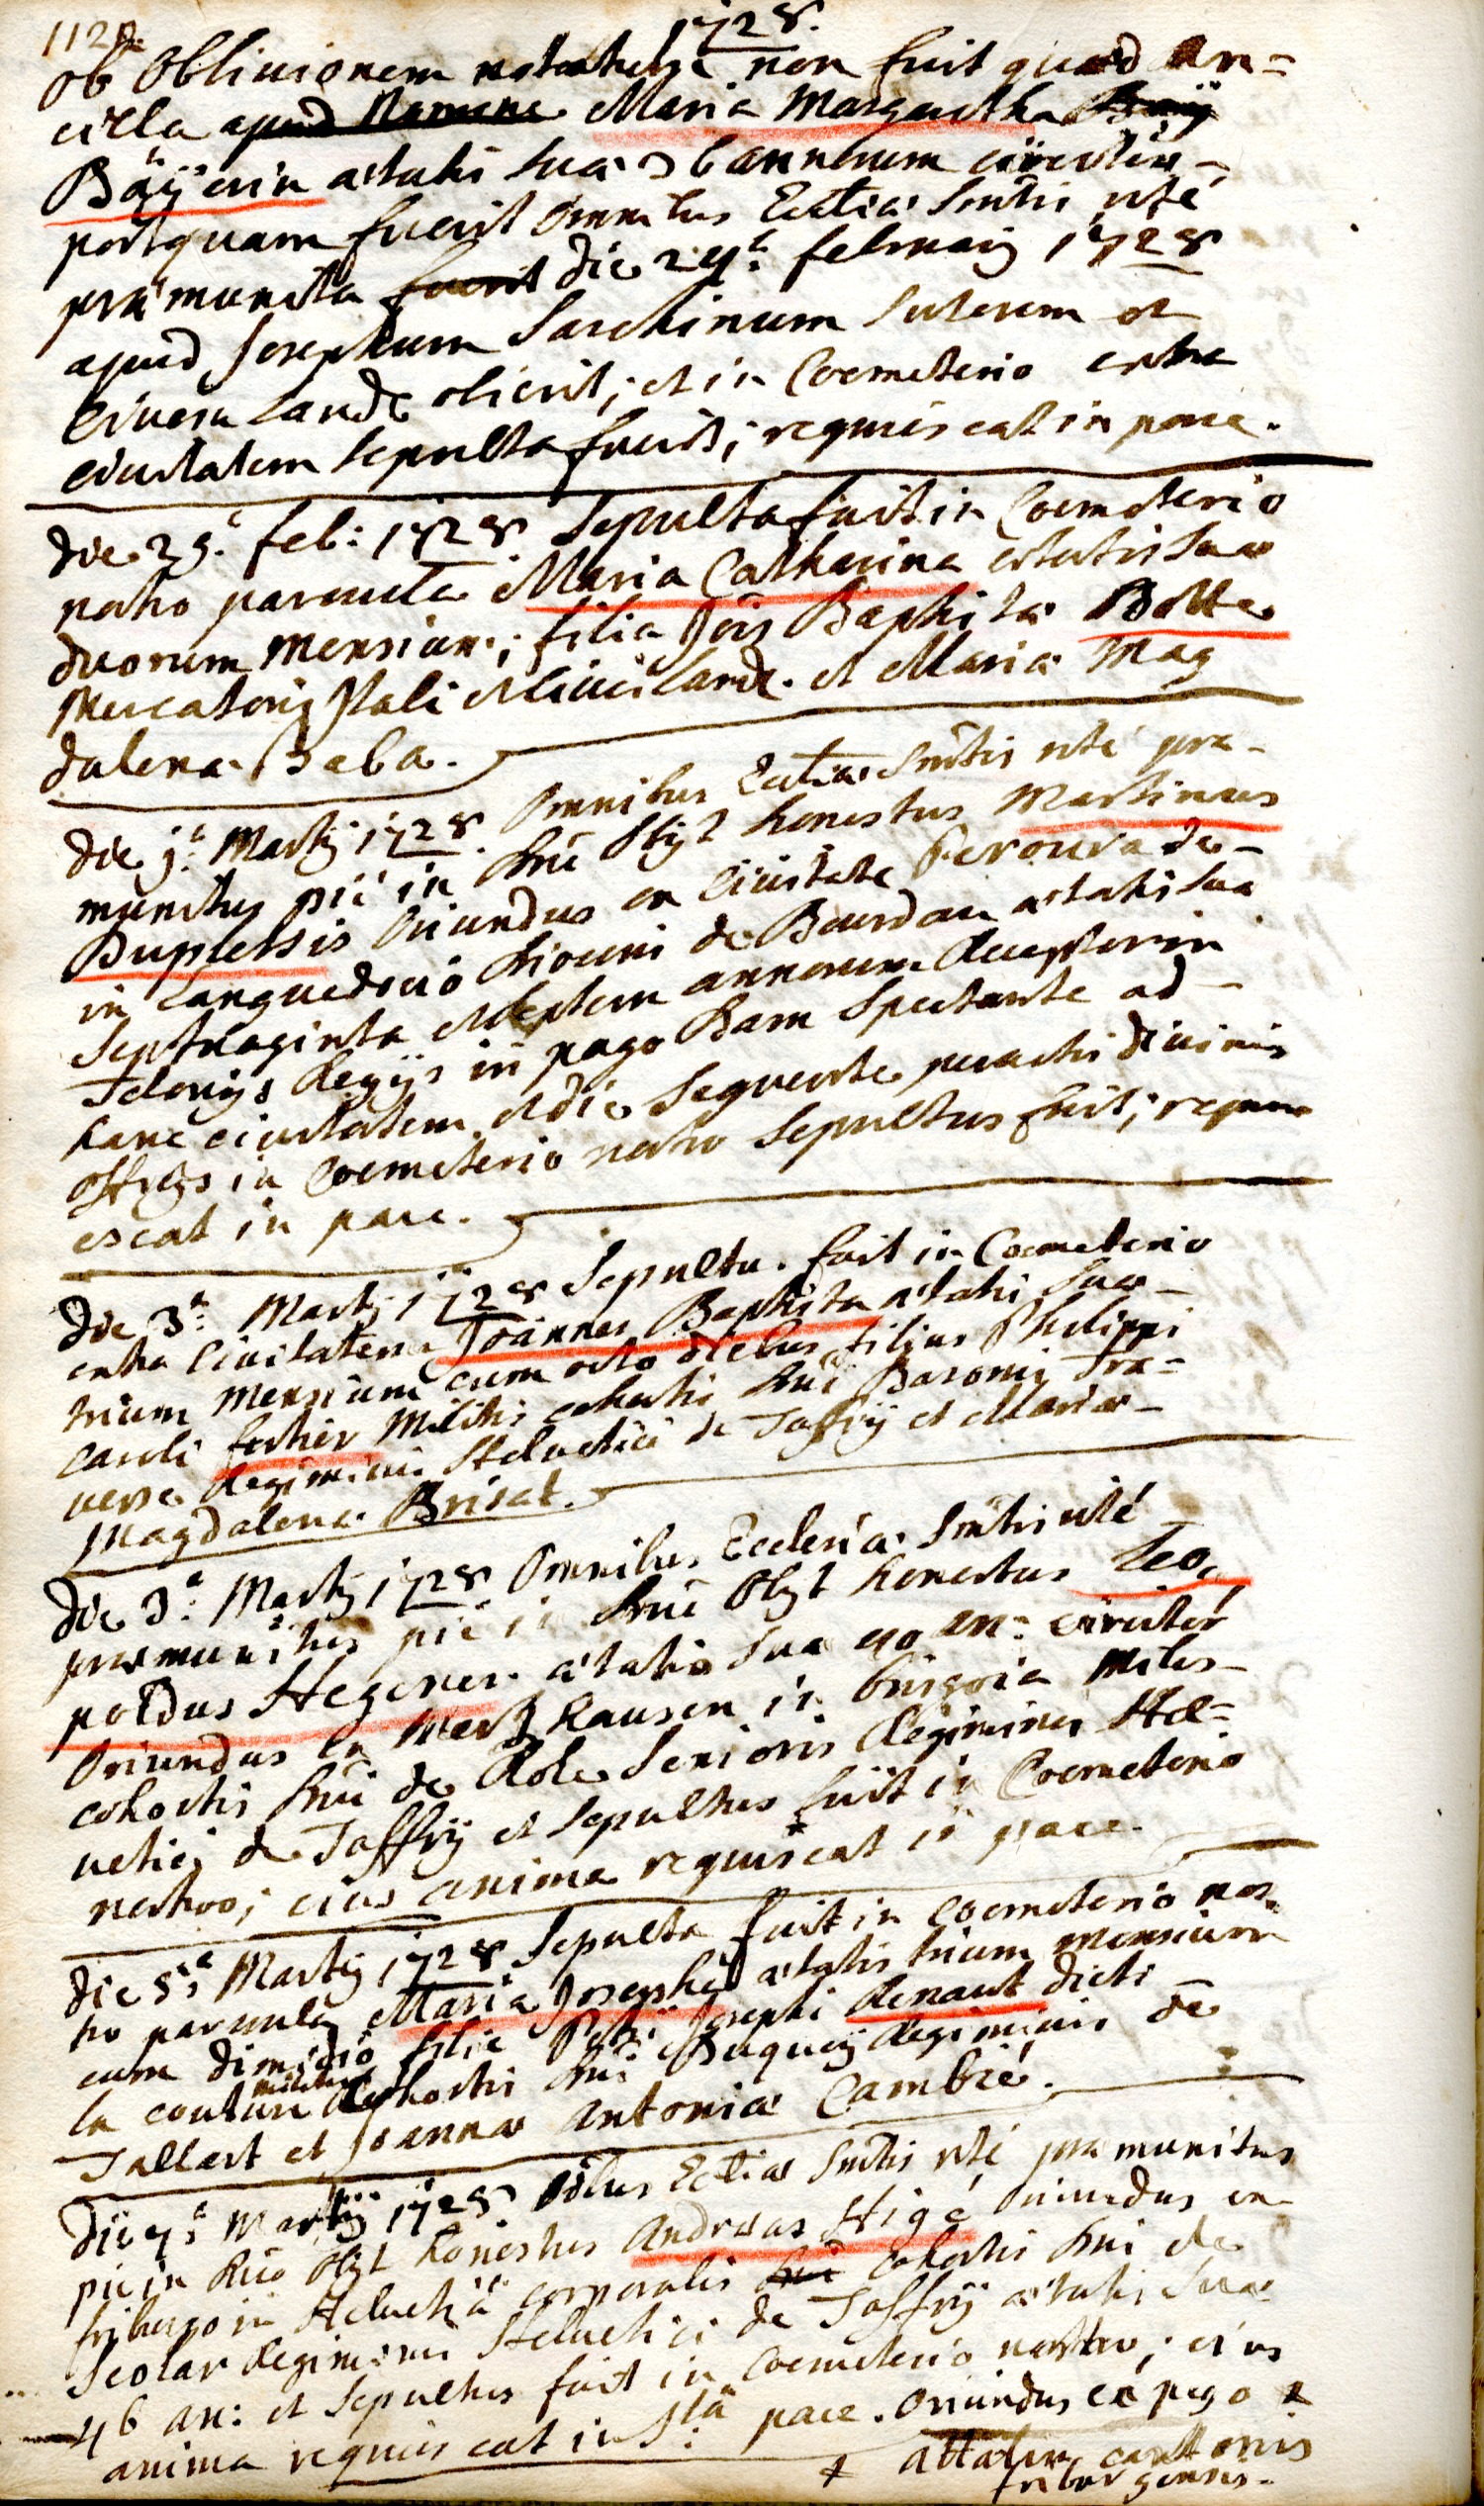 1128.
1728.
Ob oblivionem notatum non fuit quod an=
cilla apud Maria Margaretha
Bäÿerin ætatis suæ 36 annorum circiter
postquam fuerit omnibus Ecclīæ Sm̄tis rité
præmunita fuerit die 24.ª februarij 1728
apud Josephum Sartorem et
civem Land. obierit; et in Coemeterio extra
civitatem sepulta fuerit; requiescat in pace.
Die 29.ª feb: 1728. Sepulta fuit in Coemeterio
nostro parvula Maria Catharina ætatis suæ
duorum mensium; filia Jōis Baptistæ Bolte
Mercatoris Itali et civis Land. et Mariæ Mag
dalena Baba.
Die 1.ª Martij 1728. Omnibus Ecclīæ Sm̄tis rité præ-
munitus pié in Dn̄o obijt honestus Martinus
Duplessis oriundus ex civitate de
in Languedocio ætatis suæ
septuaginta et septem annorum
Telonijs Regijs in pago Dam spectante ad
hanc civitatem et die sequente peractis divinis
officijs in Coemeterio nostro sepultus fuit; requi
escat in pace.
Die 3.ª Martij 1728 Sepultus fuit in Coemeterio
extra Civitatem Joannes Baptista ætatis suæ
trium mensium cum octo diebus filius Philippi
Caroli fortier Militis cohortis Dn̄i Baronis Tra=
verse Regiminis Helvetici de Jaffrÿ et Mariæ
Magdalena Brisat.
Die 3.ª Martij 1728 Omnibus Ecclesiæ Sm̄tis rité
præmunitus pié in Dn̄o obijt honestus Leo,
poldus Hegener ætatis suæ 40 an: circiter
oriundus ex Mertzhausen in brisgoia Miles
cohortis Dn̄i de Role Senioris Regiminis Hel=
vetici de Jaffrÿ et sepultus fuit in Coemeterio
nostro; eius anima requiescat in pace.
Die 5.ª Martij 1728 Sepulta fuit in coemeterio nos
tro parvula Maria Josepha ætatis trium mensium
cum dimidio filia Petri Josephi Renaut dicti
la couture militis cohortis Dn̄i Buquoy Regiminis de
Tallart et Joannæ Antoniæ Cambié.
Die 7.ª Martij 1728. Oībus Ecclīæ Sm̄tis rité præmunitus
pié in Dn̄o obijt honestus Andreas Higé oriundus ex
friburgo in Helvetiâ corporalis Dn̄i cohortis Dn̄i de
Scolar Regiminis Helvetici de Jaffrÿ ætatis suæ
46 an: et sepultus fuit in Coemeterio nostro; eius
anima requiescat in s.tâ pace. oriundus ex pago +
+ attalen cantonis
friburgensis.